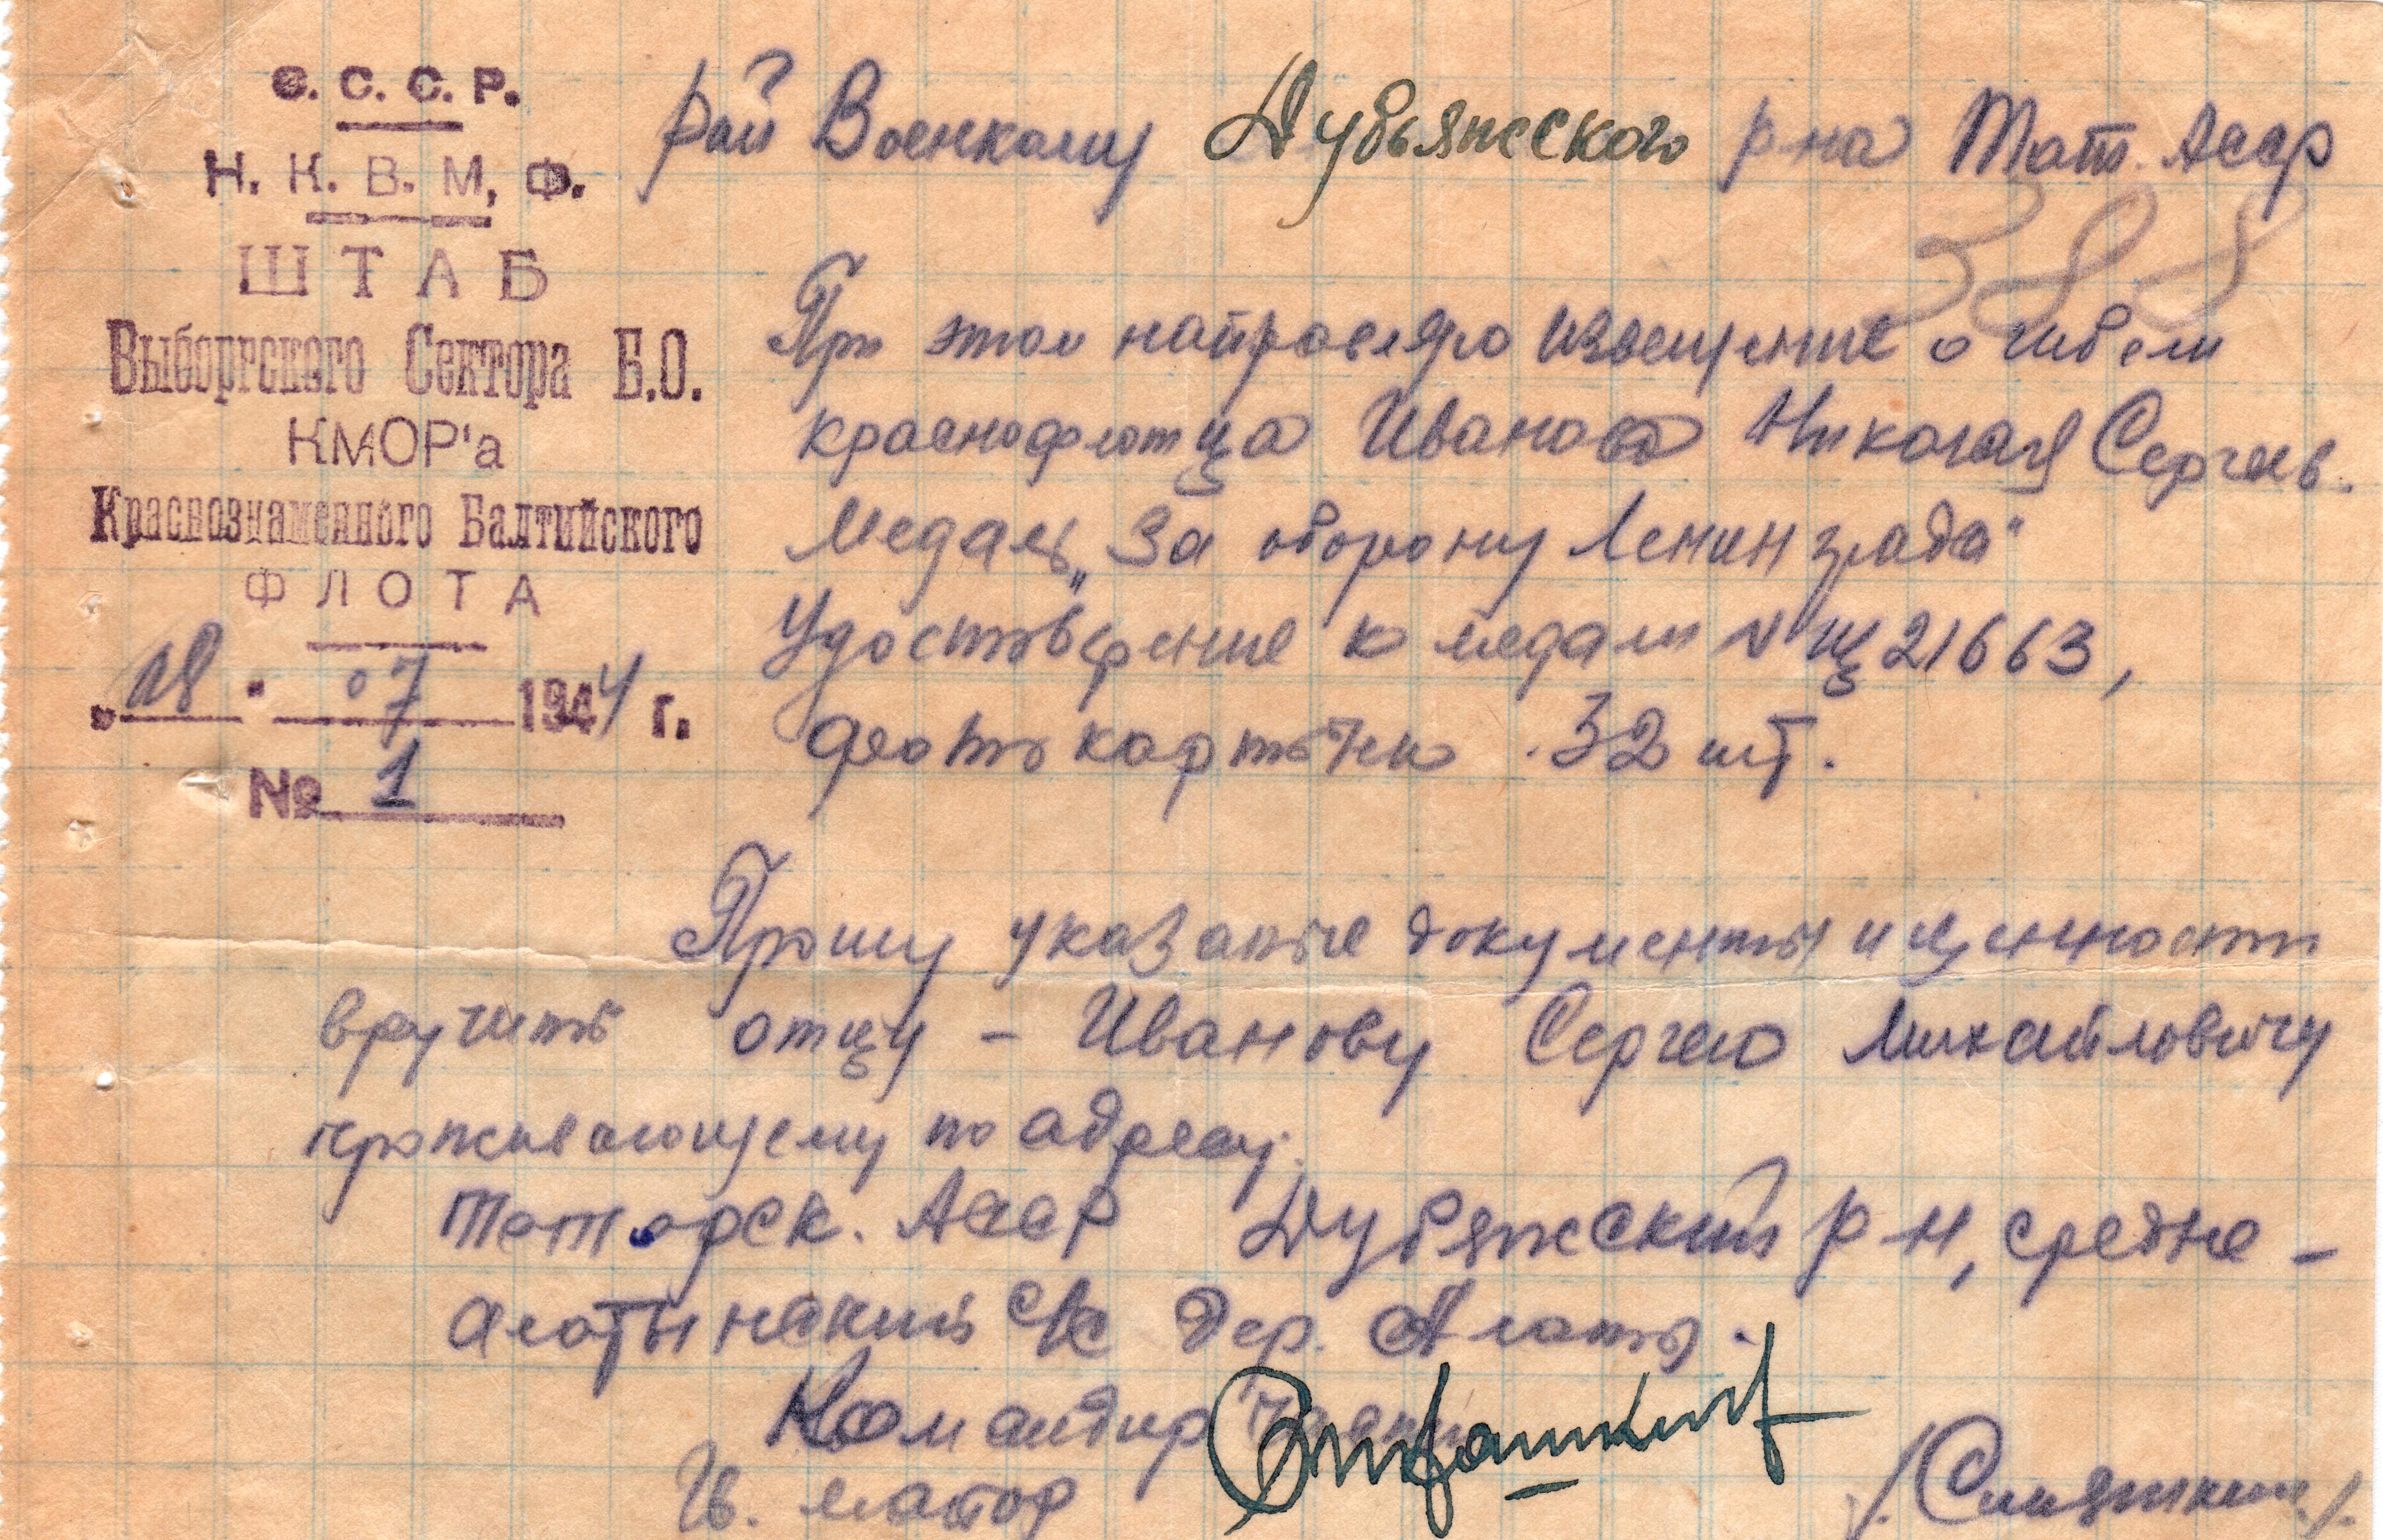 С. С. С. Р.
Н. К. В. М. Ф.
ШТАБ
Выборгского Сектора Б.О.
КМОР'а
Краснознаменного Балтийского
ФЛОТА
„18" 07 1944 г.
№ 1
Рай Военкому Дубьязского р-на Тат. Асср
388
При этом направляю извещение о гибели
краснофлотца Иванова Николая Сергеев.
Медаль „За оборону Ленинграда"
Удостоверение к медали № Щ 21663,
фото карточки 32 шт.
Прошу указаные документы и ценности
вручить отцу – Иванову Сергею Михайловичу
проживающему по адресу:
Татарск. Асср Дубяжский р-н, средне-
алатынский с/с дер. Алаты.
Командир части
Гв. майор